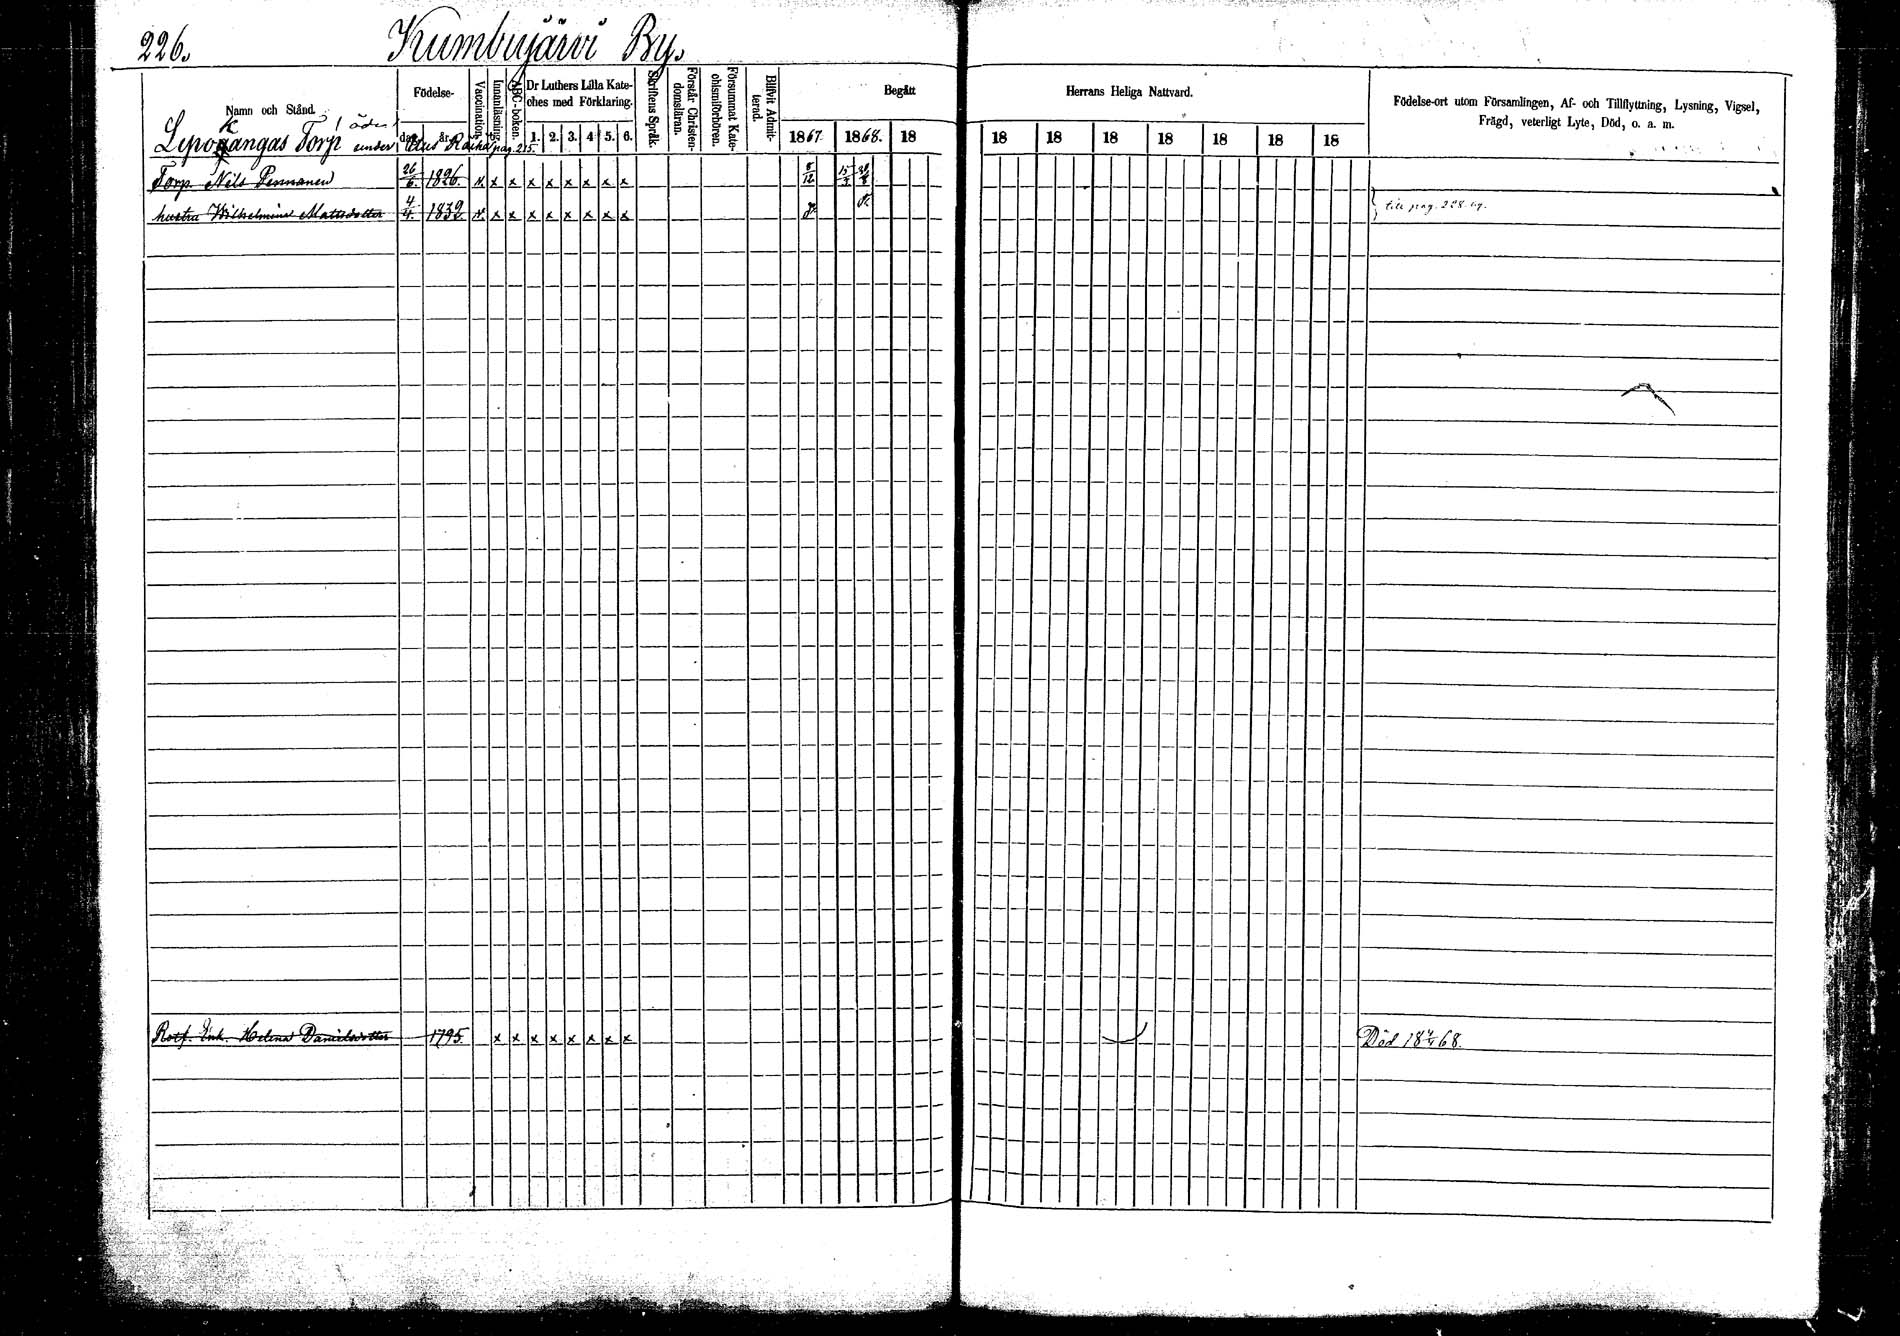 226. Kumbujärvi By.
Namn och Stånd.
Födelse-
dag
år.
Vaccination.
Innanläsning.
ABC-boken.
Dr Luthers Lilla Kate-
ches med Förklaring.
1. 2. 3. 4 5. 6.
Skriftens Språk.
Förstår Christen-
domsläran.
Försummat Kate-
chismiförhören.
Blifvit Admit-
terad.
Begått
1867. 1868. 18
Herrans Heliga Nattvard.
18 18 18 18 18 18 18
Födelse-ort utom Församlingen, Af- och Tillflyttning, Lysning, Vigsel,
Frägd, veterligt Lyte, Död, o. a. m.
Lepokangas Torp öde under pag. 215.
Torp. Nils Pennanen 26/6. 1826. v. x x x x x x x x 8/12
hustru Wilhelmina Mattsdotter 4/4. 1832 v. x x x x x x x x
till pag. 228.
Enk. Helena Danielsdotter 1795. x x x x x x x x Död 18 68.